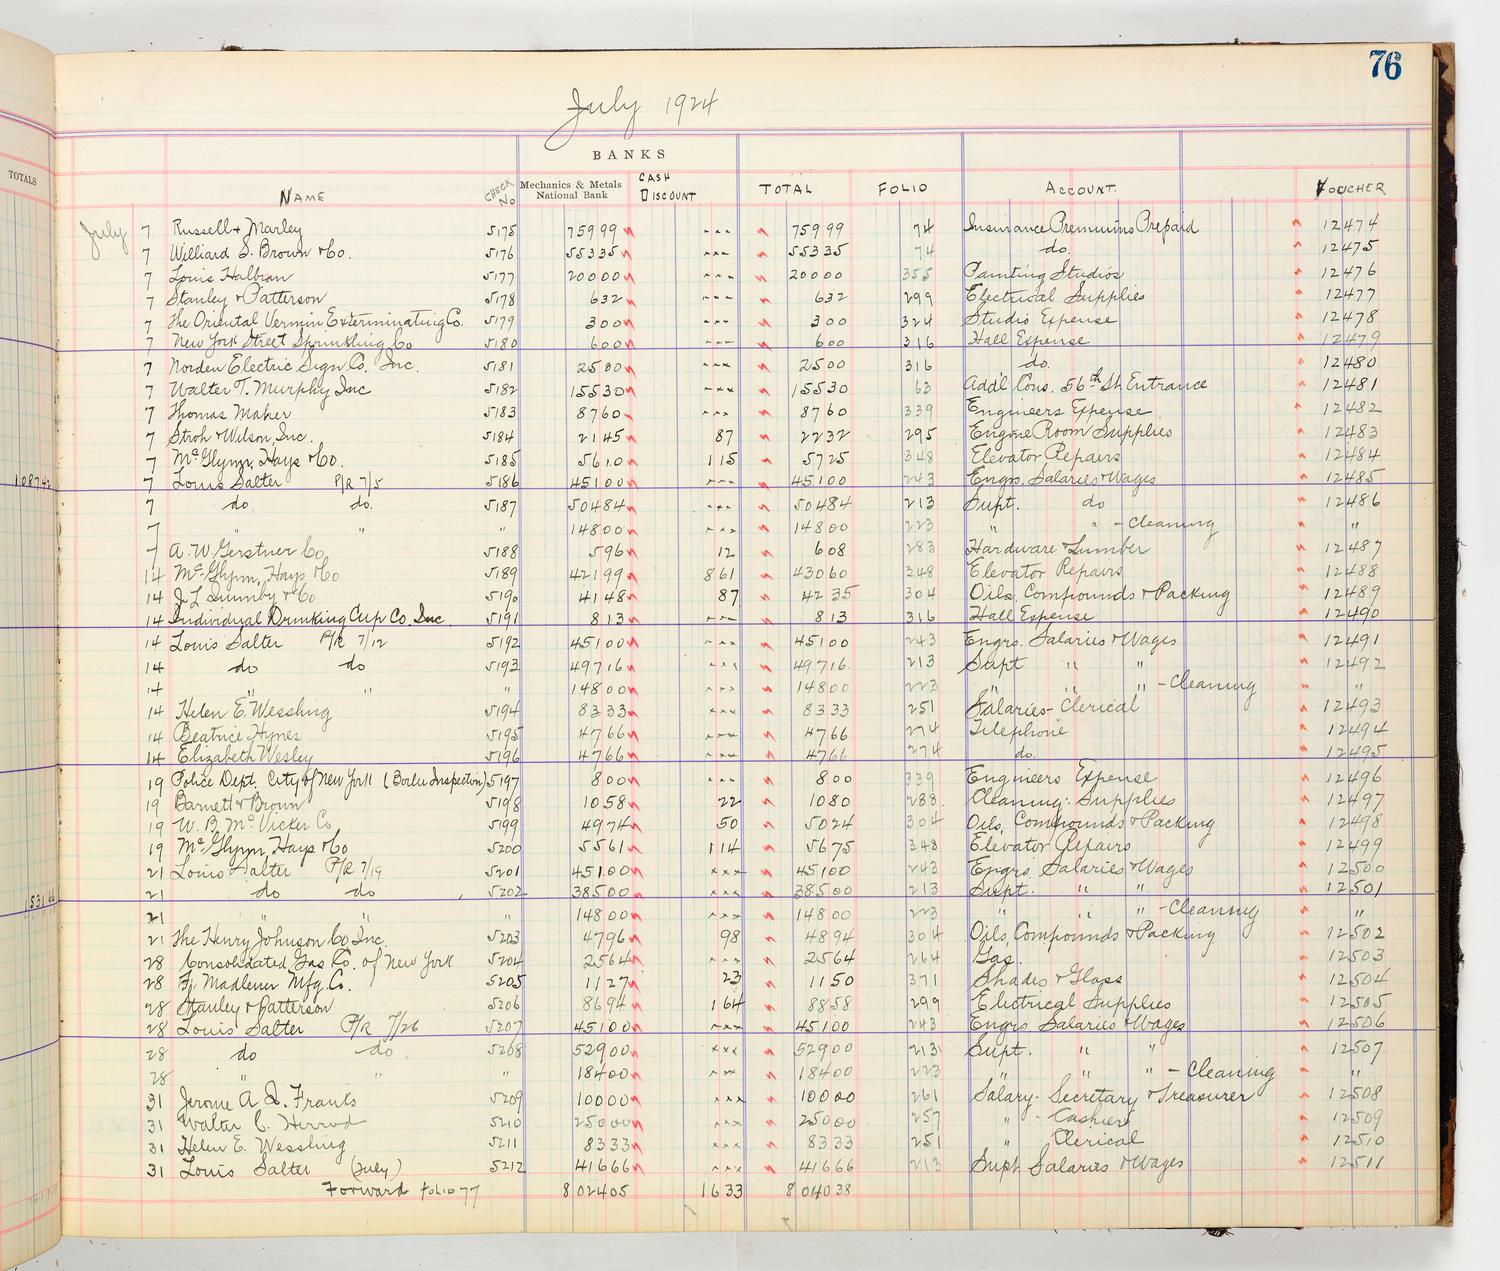 76
July 1924
TOTALS
BANKS
NAME CHECK No Mechanics & Metals National Bank CASH DISCOUNT TOTAL FOLIO ACCOUNT. VOUCHER
July 7 Russell & Marley 5175 75999 --- 75999 74 Insurance Premiums Prepaid 12474
7 Williard S. Brown & Co. 5176 55335 --- 55335 74 do. 12475
7 Louis Halbran 5177 20000 --- 20000 355 Painting Studios 12476
7 Stanley & Patterson 5178 632 --- 632 299 Electrical Supplies 12477
7 The Oriental Vermin Exterminating Co. 5179 300 --- 300 324 Studio Expense 12478
7 New York Street Sprinkling Co 5180 600 --- 600 316 Hall Expense 12479
7 Norden Electric Sign Co. Inc. 5181 2500 --- 2500 316 do. 12480
7 Walter T. Murphy Inc 5182 15530 --- 15530 63 Add'l Cons. 56th St. Entrance 12481
7 Thomas Maher 5183 8760 --- 8760 339 Engineers Expense 12482
7 Stroh & Wilson, Inc. 5184 2145 87 2232 295 Engine Room Supplies 12483
7 McGlynn, Hays & Co. 5185 5610 115 5725 348 Elevator Repairs 12484
108742 7 Louis Salter P/R 7/5 5186 45100 --- 45100 243 Engrs. Salaries & Wages 12485
7 do. do. 5187 50484 --- 50484 213 Supt. do 12486
7 " " " 14800 --- 14800 223 " " - Cleaning "
7 A. W. Gerstner Co. 5188 596 12 608 283 Hardware & Lumber 12487
14 McGlynn, Hays & Co 5189 42199 861 43060 348 Elevator Repairs 12488
14 J L Quimby & Co 5190 4148 87 4235 304 Oils, Compounds & Packing 12489
14 Individual Drinking Cup Co. Inc. 5191 813 --- 813 316 Hall Expense 12490
14 Louis Salter P/R 7/12 5192 45100 --- 45100 243 Engrs. Salaries & Wages 12491
14 do do 5193 49716 --- 49716 213 Supt " " 12492
14 " " " 14800 --- 14800 223 " " " - Cleaning "
14 Helen E. Wessling 5194 8333 --- 8333 251 Salaries - Clerical 12493
14 Beatrice Hynes 5195 4766 --- 4766 274 Telephone 12494
14 Elizabeth Wesley 5196 4766 --- 4766 274 do. 12495
19 Police Dept. City of New York (Boiler Inspection) 5197 800 --- 800 339 Engineers Expense 12496
19 Barnett & Brown 5198 1058 22 1080 288 Cleaning: Supplies 12497
19 W. B. McVicker Co 5199 4974 50 5024 304 Oils, Compounds & Packing 12498
19 McGlynn, Hays & Co 5200 5561 114 5675 348 Elevator Repairs 12499
21 Louis Salter P/R 7/19 5201 45100 --- 45100 243 Engrs. Salaries & Wages 12500
153166 21 do do 5202 38500 --- 38500 213 Supt. " " 12501
21 " " " 14800 --- 14800 223 " " " - Cleaning "
21 The Henry Johnson Co, Inc. 5203 4796 98 4894 304 Oils, Compounds & Packing 12502
28 Consolidated Gas Co. of New York 5204 2564 --- 2564 264 Gas. 12503
28 Fr. Madlener Mfg. Co. 5205 1127 23 1150 371 Shades & Glass 12504
28 Stanley & Patterson 5206 8694 164 8858 299 Electrical Supplies 12505
28 Louis Salter P/R 7/26 5207 45100 --- 45100 243 Engrs. Salaries & Wages 12506
28 do do 5208 52900 --- 52900 213 Supt. " " 12507
28 " " " 18400 --- 18400 223 " " " - Cleaning "
31 Jerome A Q. Franks 5209 10000 --- 10000 261 Salary - Secretary & Treasurer 12508
31 Walter C. Herrod 5210 25000 --- 25000 257 " - Cashier 12509
31 Helen E. Wessling 5211 8333 --- 8333 251 " Clerical 12510
31 Louis Salter (July) 5212 41666 --- 41666 213 Supt Salaries & Wages 12511
Forward folio 77 802405 1633 804038